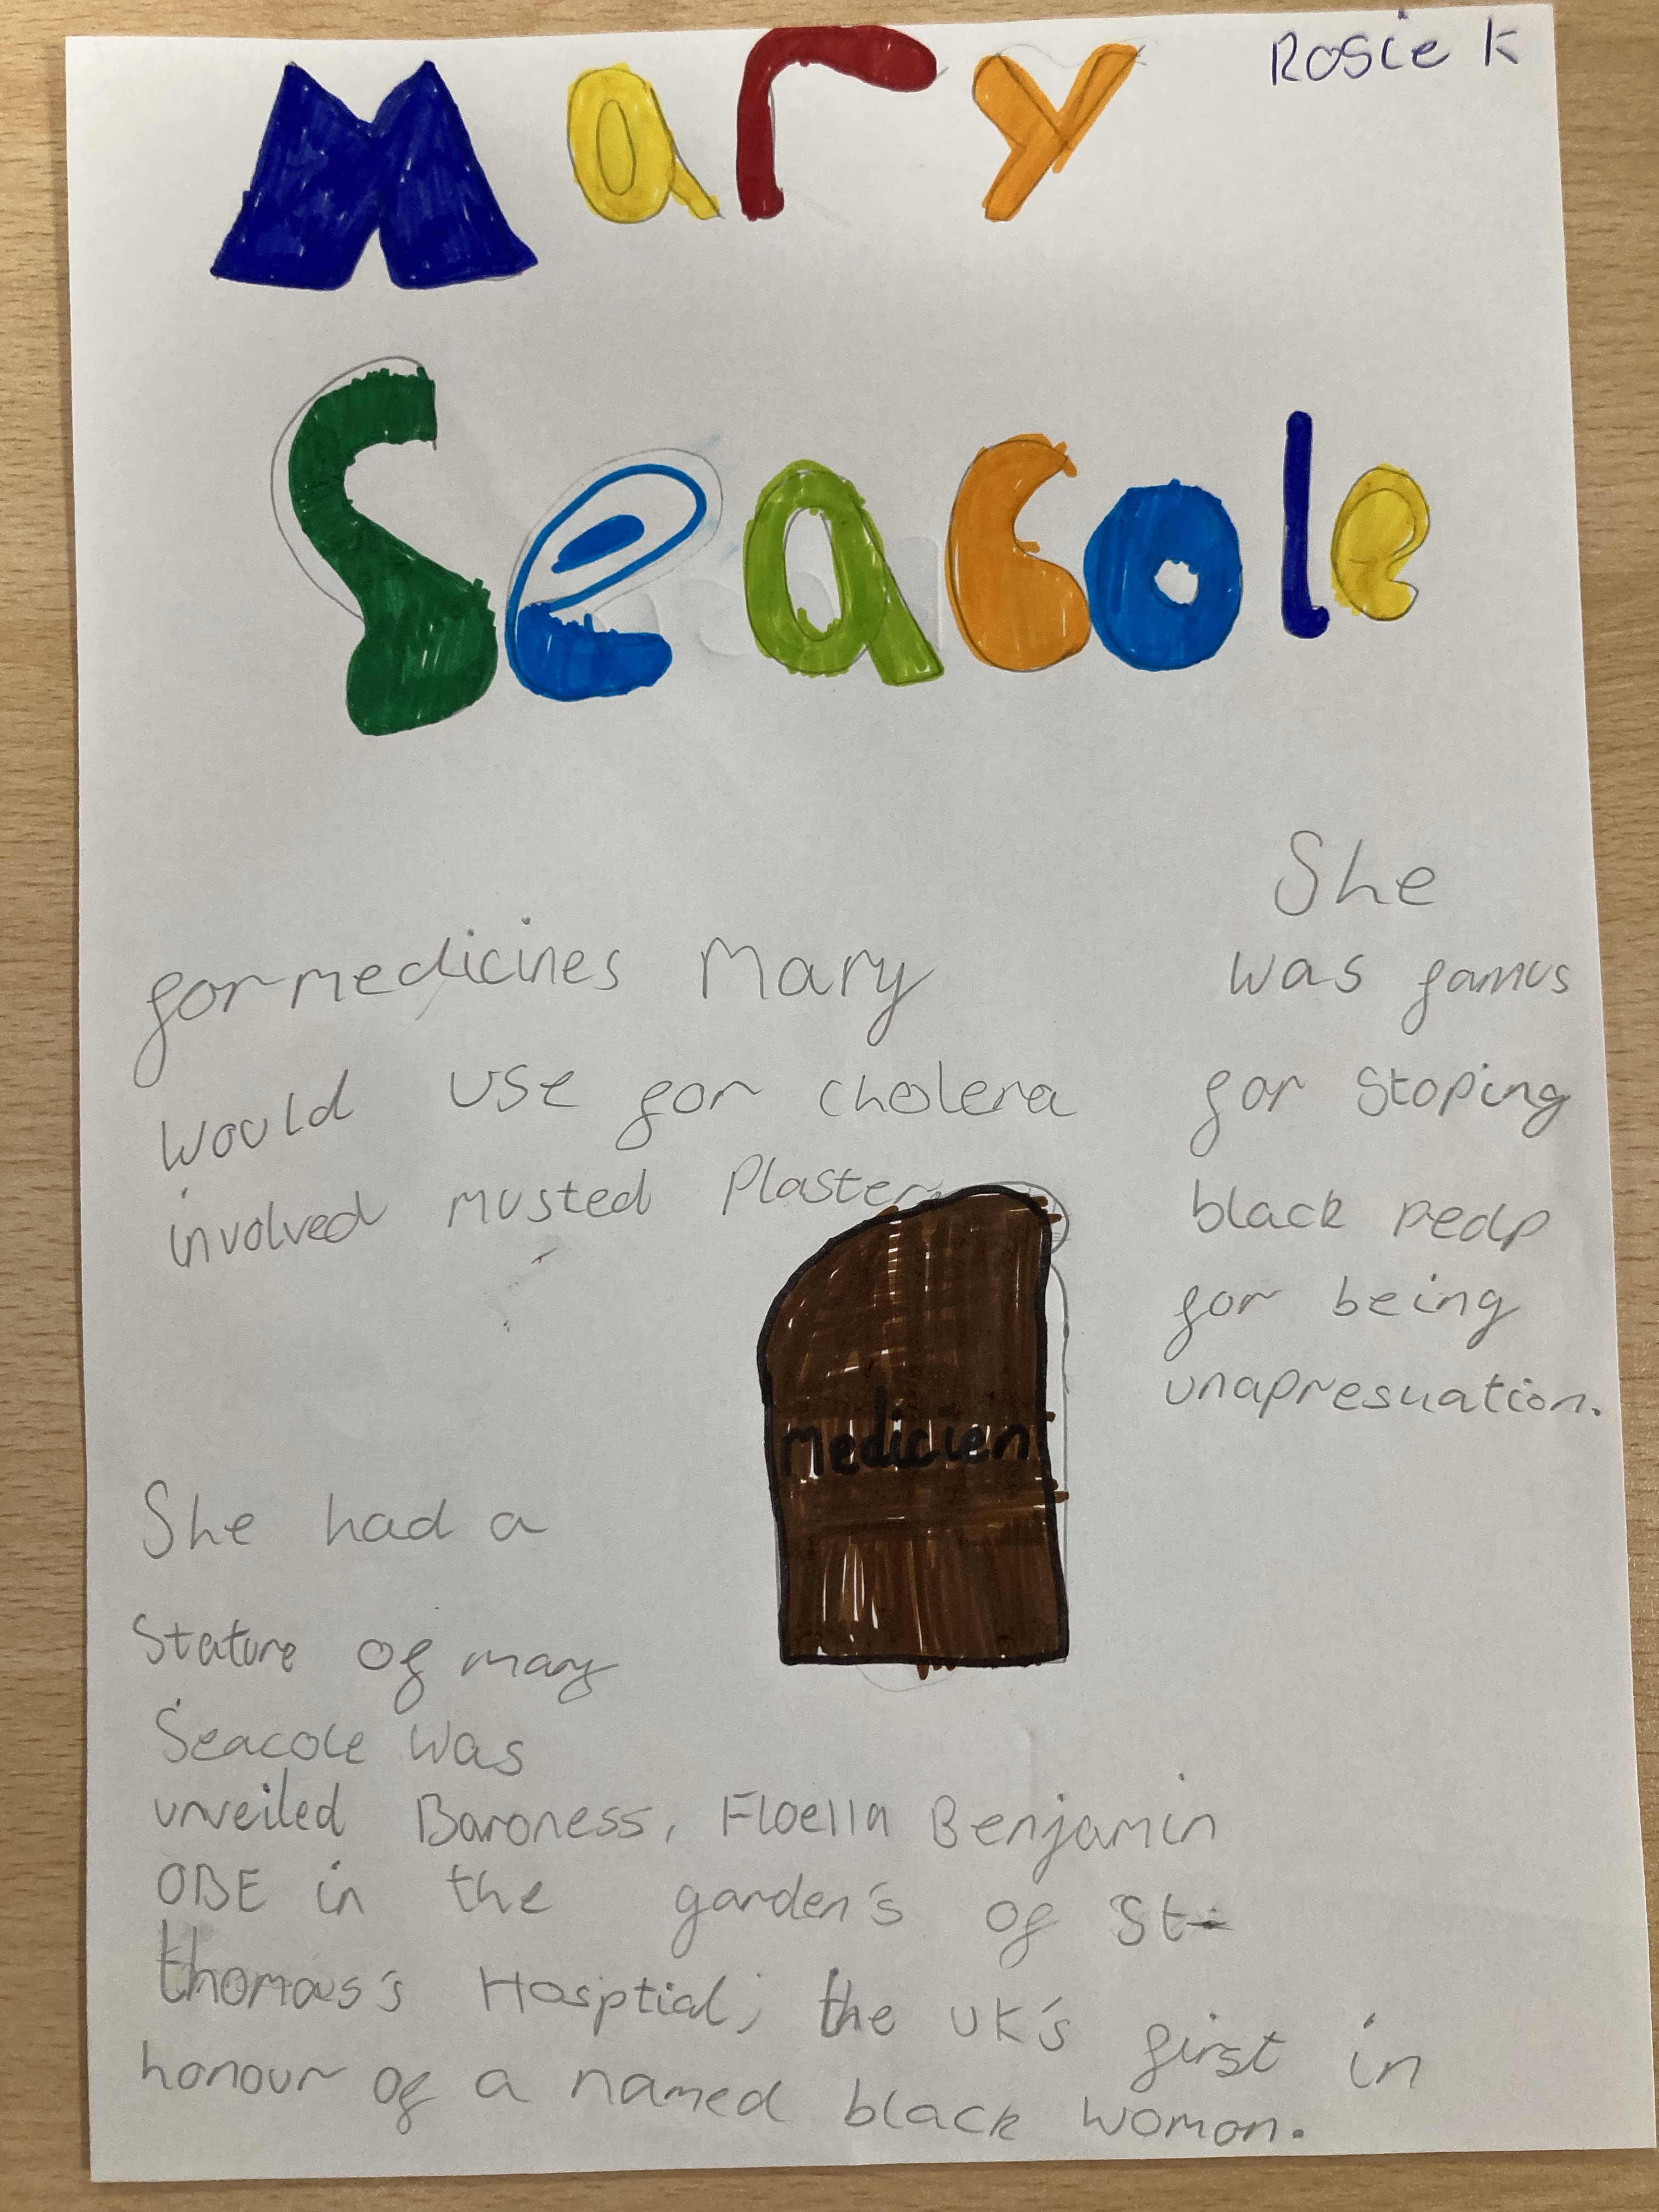 Rosie K
Mary
Seacole
for medicines Mary
would use for cholera
involved musted Plaster
She
was famus
for stoping
black peolp
for being
unapresuation.
medicien
She had a
Stature of mary
Seacole was
unveiled Baroness, Floella Benjamin
OBE in the garden's of St
thomas's Hosptial, the UK's first in
honour of a named black woman.